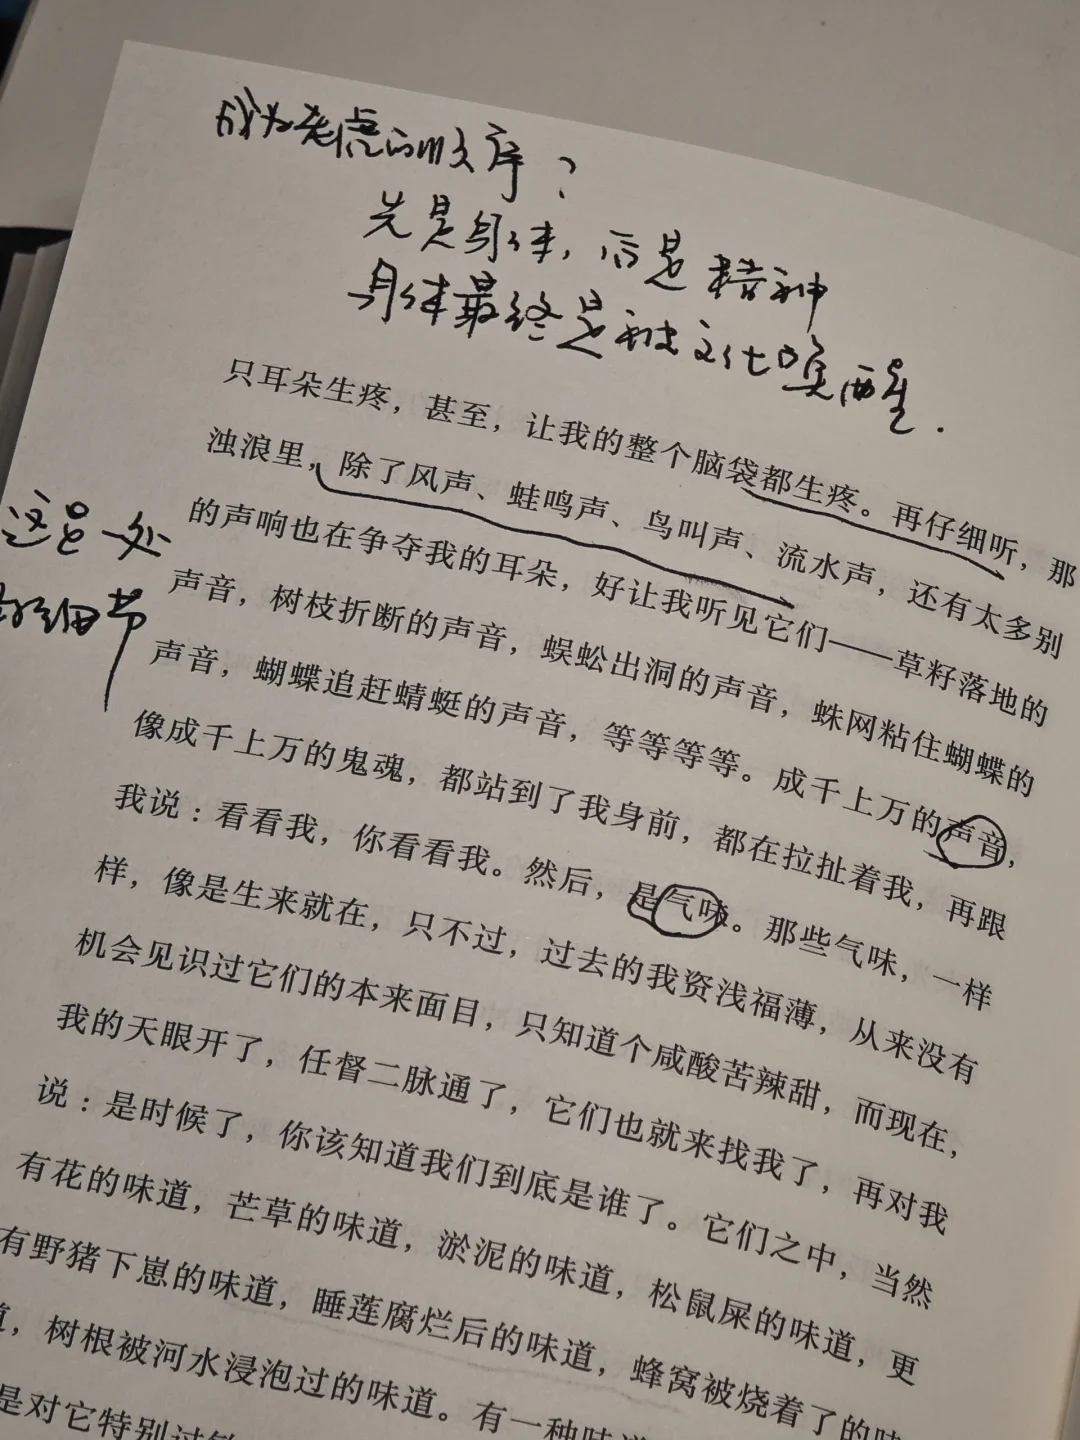 成为老虎的顺序？
先是身体，后是精神
身体最终是被文化唤醒.
只耳朵生疼，甚至，让我的整个脑袋都生疼。再仔细听，那
浊浪里，除了风声、蛙鸣声、鸟叫声、流水声，还有太多别
的声响也在争夺我的耳朵，好让我听见它们——草籽落地的
这是一处
的细节
声音，树枝折断的声音，蜈蚣出洞的声音，蛛网粘住蝴蝶的
声音，蝴蝶追赶蜻蜓的声音，等等等等。成千上万的声音，
像成千上万的鬼魂，都站到了我身前，都在拉扯着我，再跟
我说：看看我，你看看我。然后，是气味。那些气味，一样
样，像是生来就在，只不过，过去的我资浅福薄，从来没有
机会见识过它们的本来面目，只知道个咸酸苦辣甜，而现在，
我的天眼开了，任督二脉通了，它们也就来找我了，再对我
说：是时候了，你该知道我们到底是谁了。它们之中，当然
有花的味道，芒草的味道，淤泥的味道，松鼠屎的味道，更
有野猪下崽的味道，睡莲腐烂后的味道，蜂窝被烧着了的味
道，树根被河水浸泡过的味道。有一种味道
是对它特别过